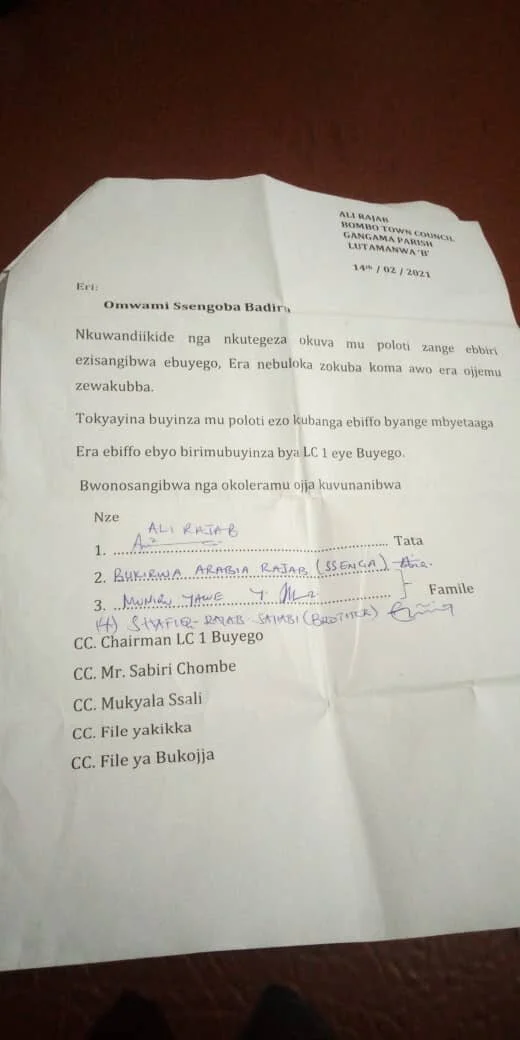 ALI RAJAB
BOMBO TOWN COUNCIL
GANGAMA PARISH
LUTAMANWA 'B'
14th / 02 / 2021
Eri:
Omwami Ssengoba Badiru
Nkuwandiikide nga nkutegeza okuva mu poloti zange ebbiri
ezisangibwa ebuyego, Era nebuloka zokuba koma awo era ojjemu
zewakubba.
Tokyayina buyinza mu poloti ezo kubanga ebiffo byange mbyetaaga
Era ebiffo ebyo birimubuyinza bya LC 1 eye Buyego.
Bwonosangibwa nga okoleramu ojja kuvunanibwa
Nze
ALI RAJAB
1. ................................................ Tata
2. BUKIRWA ARABIA RAJAB (SSENGA)
3. MUNIRU YAWE Y. Famile
(4) SHAFIQ-RAJAB-SAHABI (BROTHER)
CC. Chairman LC 1 Buyego
CC. Mr. Sabiri Chombe
CC. Mukyala Ssali
CC. File yakikka
CC. File ya Bukojja